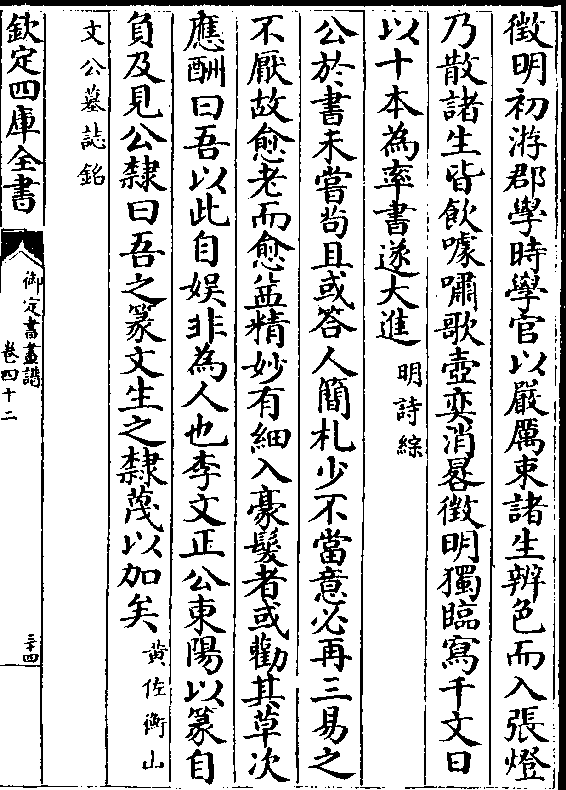 徵明初游郡學時學官以嚴厲束諸生辨色而入張燈
乃散諸生皆飲噱嘯歌壺奕消晷徵明獨臨寫千文日
以十本為率書遂大進 明詩綜
公於書未嘗茍且或答人簡札少不當意必再三易之
不厭故愈老而愈益精妙有細入豪髮者或勸其草次
應酬曰吾以此自娯非為人也李文正公東陽以篆自
負及見公隸曰吾之篆文生之隸蔑以加矣 黄佐衡山
文公墓誌銘
欽定四庫全書
御定書畫譜
卷四十二
三十四